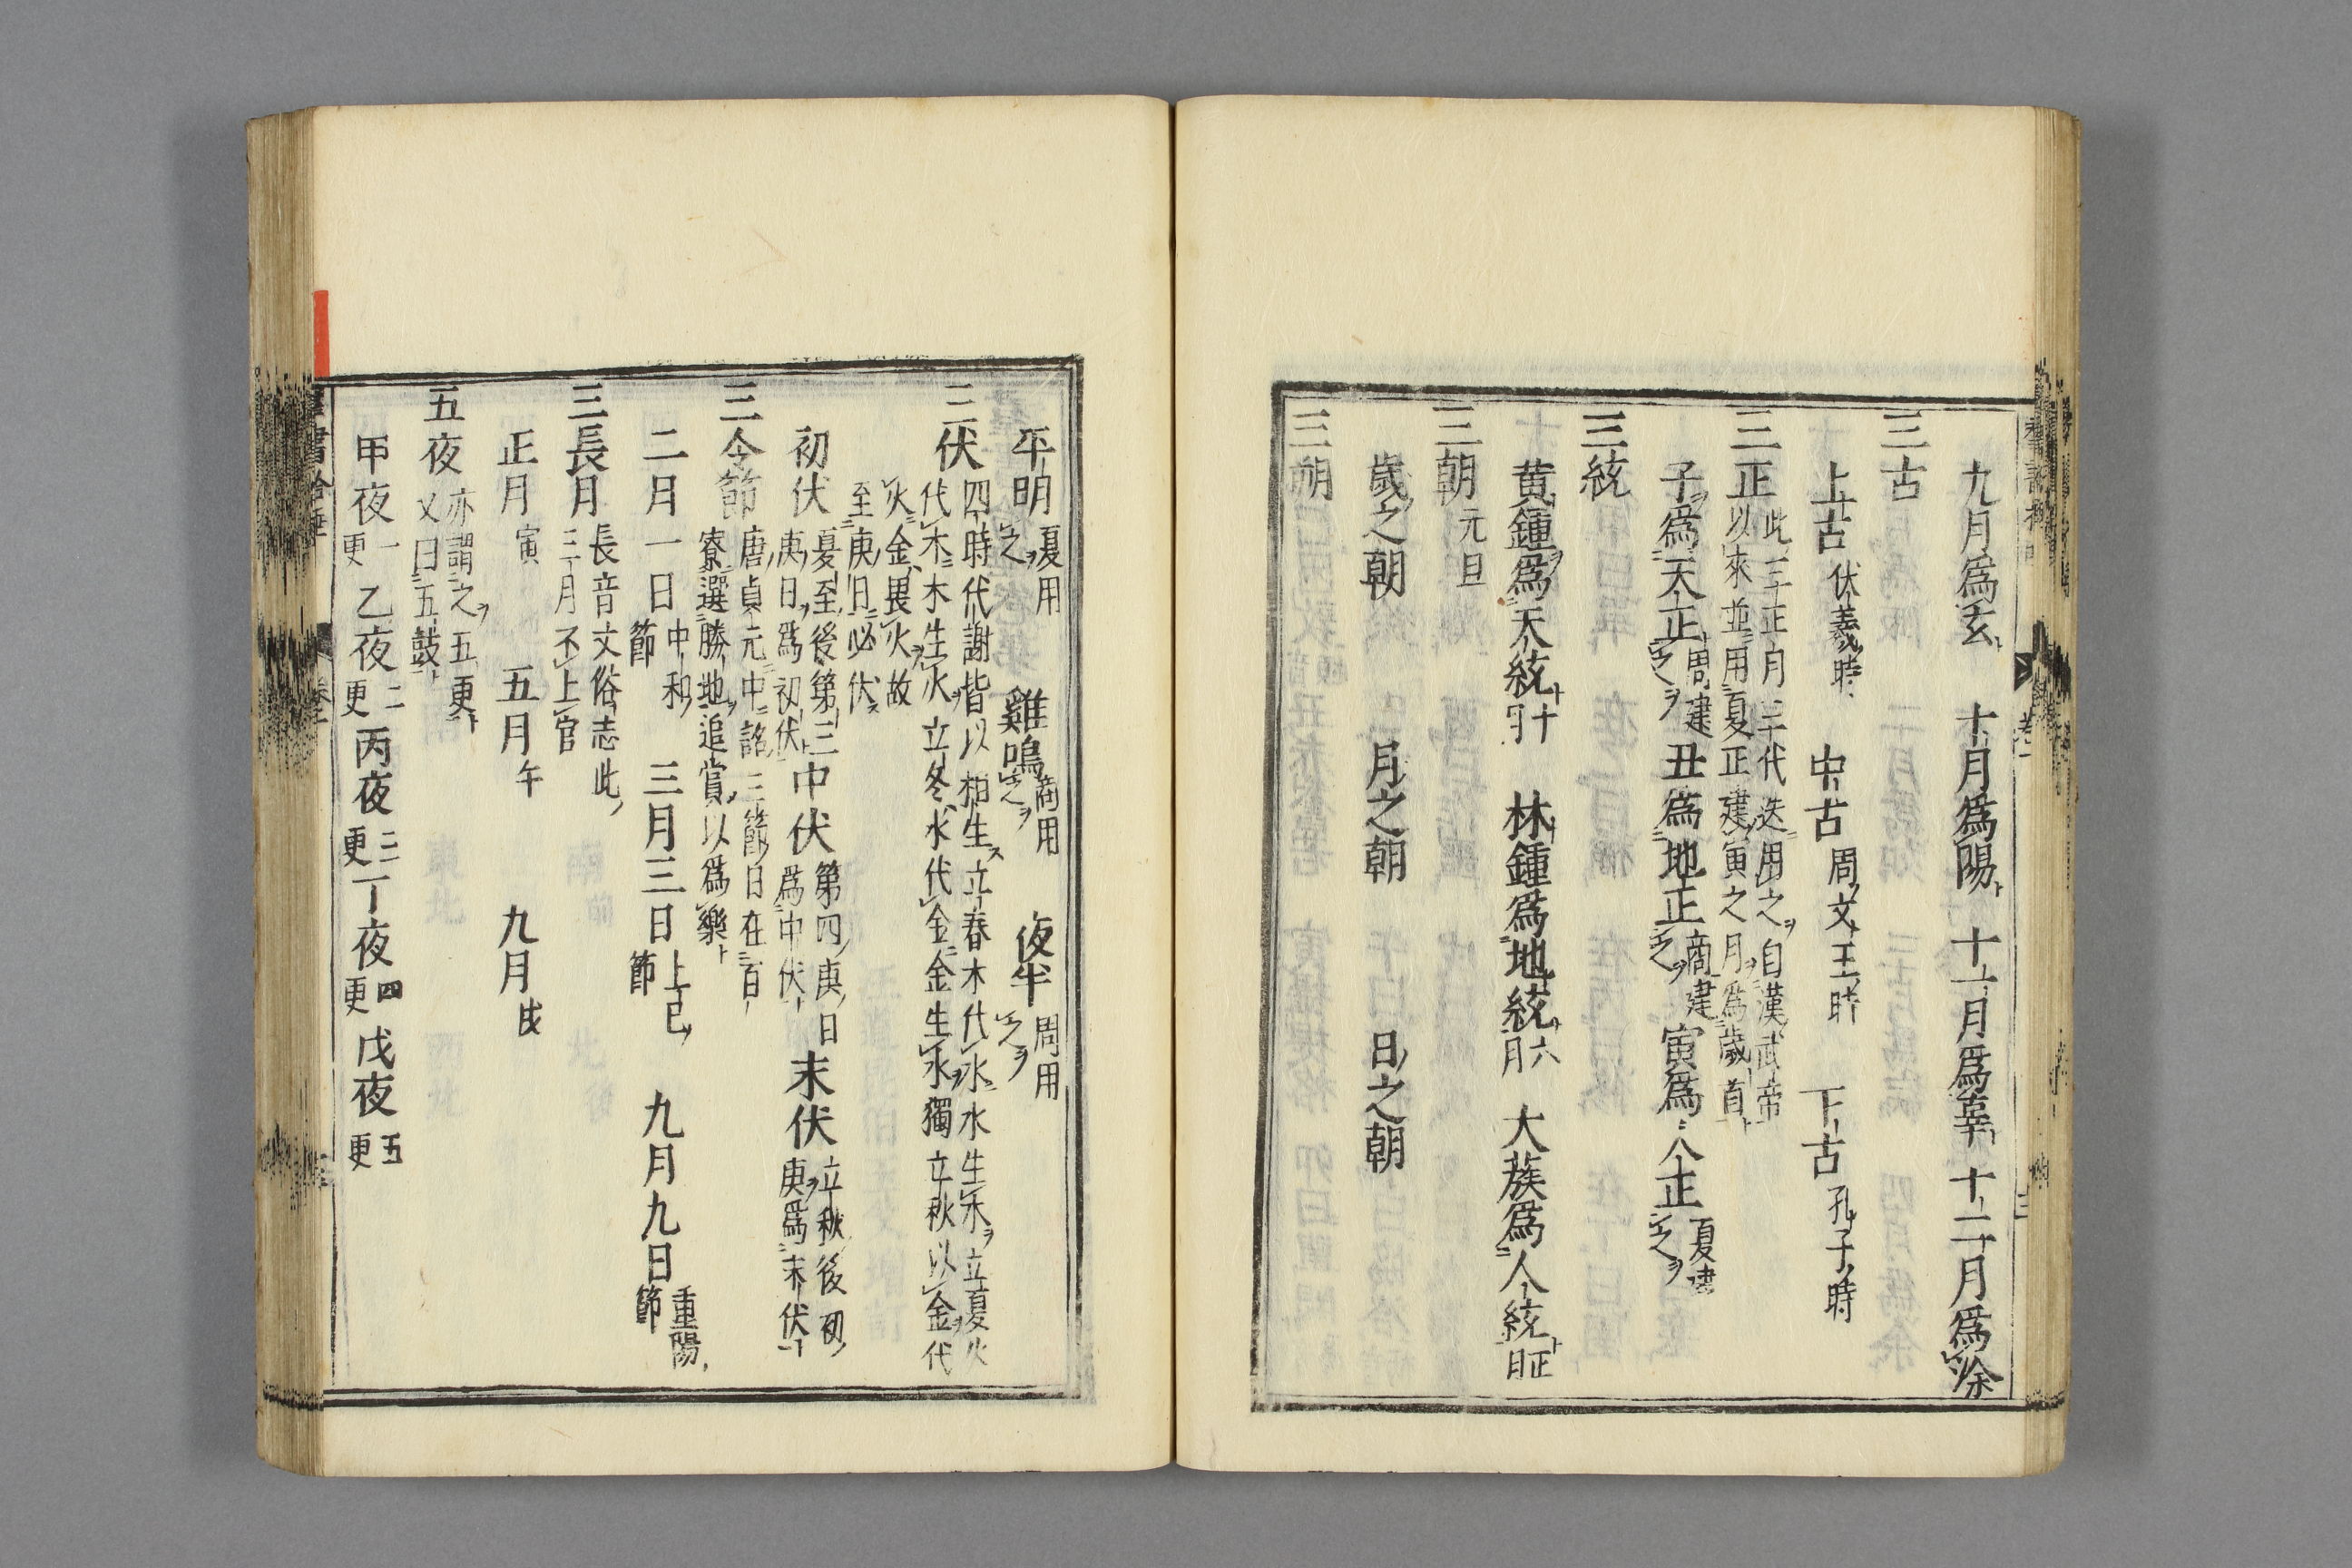 九月爲玄 十月爲陽 十一月爲辜 十二月爲涂
三古
上古 伏羲時 中古 周文王時 下古 孔子時
三正 此三正月三代迭用之自漢武帝
以來並用夏正建寅之月爲歲首
子爲天正 周建之 丑爲地正 商建之 寅爲人正 夏建之
三統
黄鍾爲天統 十一月 林鍾爲地統 六月 大蔟爲人統 正月
三朝 元旦
歲之朝 月之朝 日之朝
三朔
平明 夏用之 雞鳴 商用之 夜半 周用之
三伏 四時代謝皆以相生立春木代水水生木立夏火
代木木生火立冬水代金金生水獨立秋以金代
火金畏火故
至庚日必伏
初伏 夏至後第三庚日爲初伏 中伏 第四庚日爲中伏 末伏 立秋後初庚爲末伏
三令節 唐貞元中詔三節日在百
寮選勝地追賞以爲樂
二月一日 中和節 三月三日 上巳節 九月九日 重陽節
三長月 長音文俗志此
三月不上官
正月 寅 五月 午 九月 戌
五夜 亦謂之五更
又曰五鼓
甲夜 一更 乙夜 二更 丙夜 三更 丁夜 四更 戊夜 五更